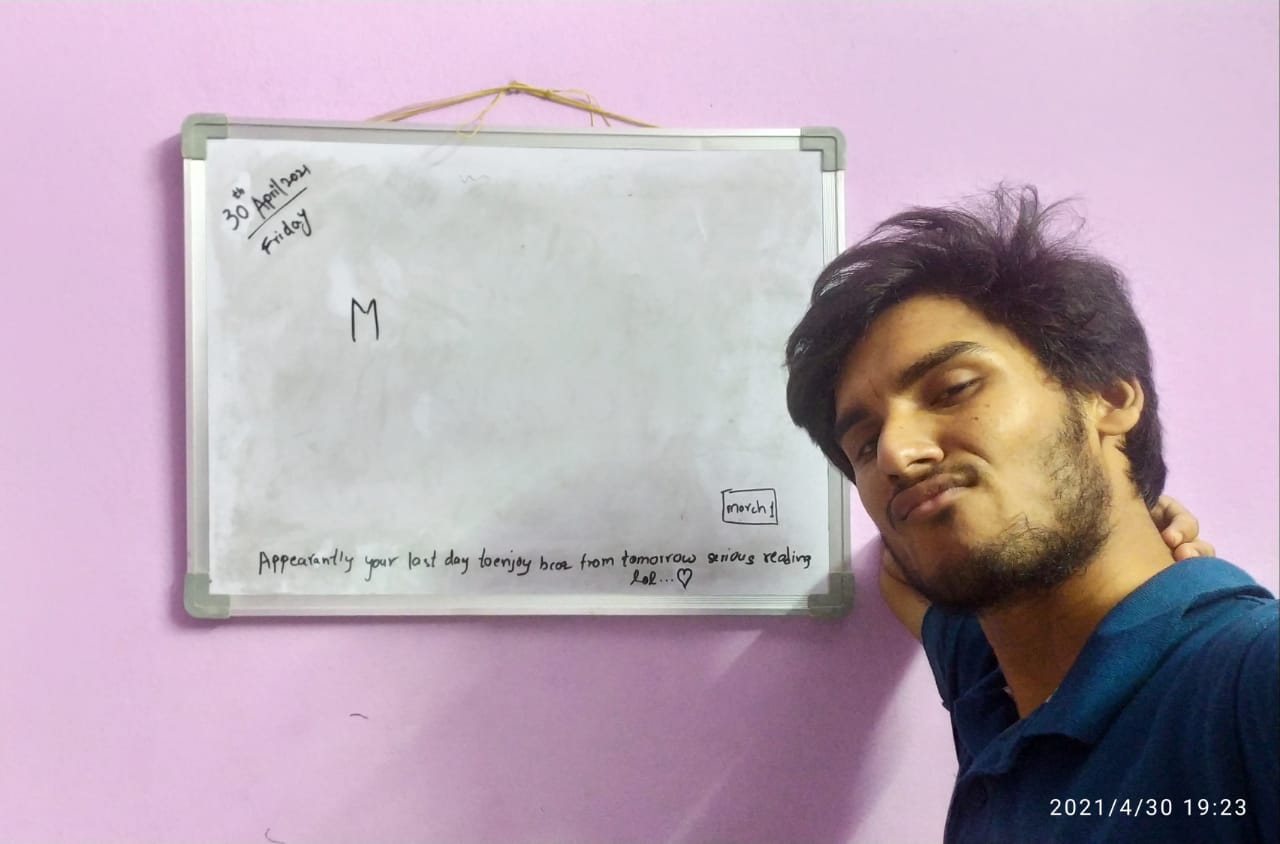 30th April 2021
Friday
M
march 1
Appearantly your last day to enjoy bcoz from tomorrow serious reading
lol...♡
2021/4/30 19:23